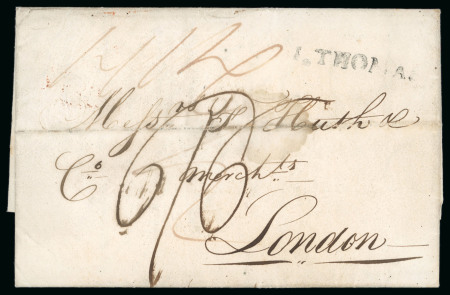 St. THOMAS.
Messrs F. Huth &
Co. merchts
London